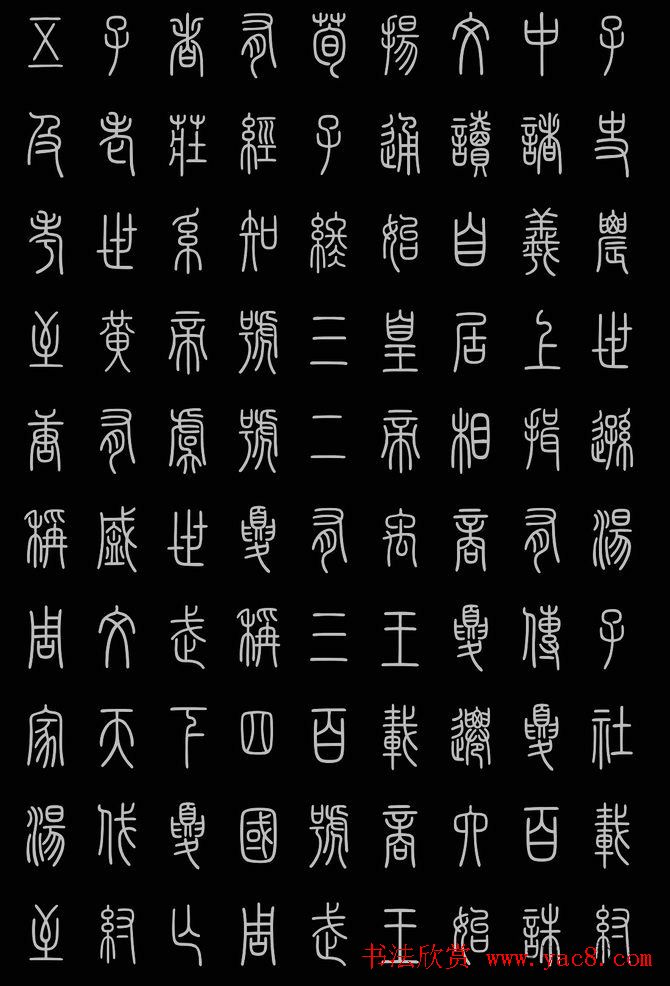 五子者有荀揚文中子
及老莊經子通讀諸史
考世系知終始自羲農
至黃帝號三皇居上世
唐有虞號二帝相揖遜
稱盛世夏有禹商有湯
周文武稱三王夏傳子
家天下四百載遷夏社
湯伐夏國號商六百載
至紂亡周武王始誅紂
书法欣赏 www.yac8.com